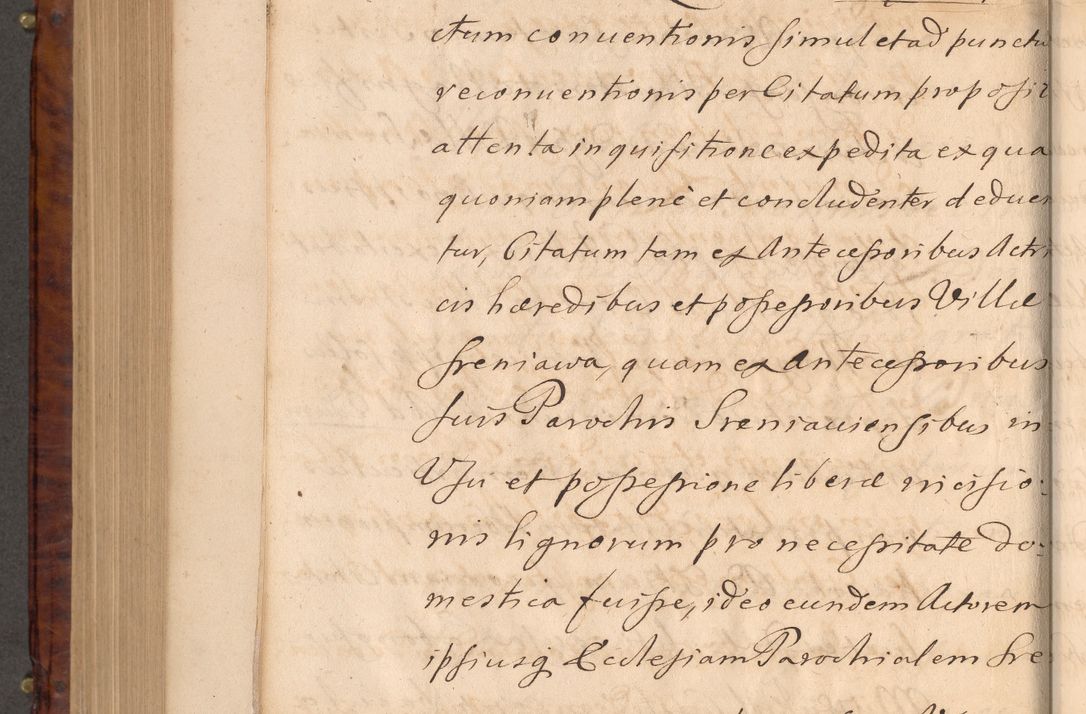 ctum conuentionis simul et ad punctu
reconuentionis per Citatum proposit
attenta inquisitione expedita ex qua
quoniam plenè et concludenter deduci
tur, Citatum tam ex Antecessoribus Actri
cis hæredibus et possessoribus Villæ
Sreniawa, quam ex Antecessoribus
suis Parochis Sreniauiensibus in
Vsu et possessione liberæ incisio-
nis lignorum pro necessitate do-
mestica fuisse, ideo eundem Actorem
ipsiusq Ecclesiam Parochialem Sre